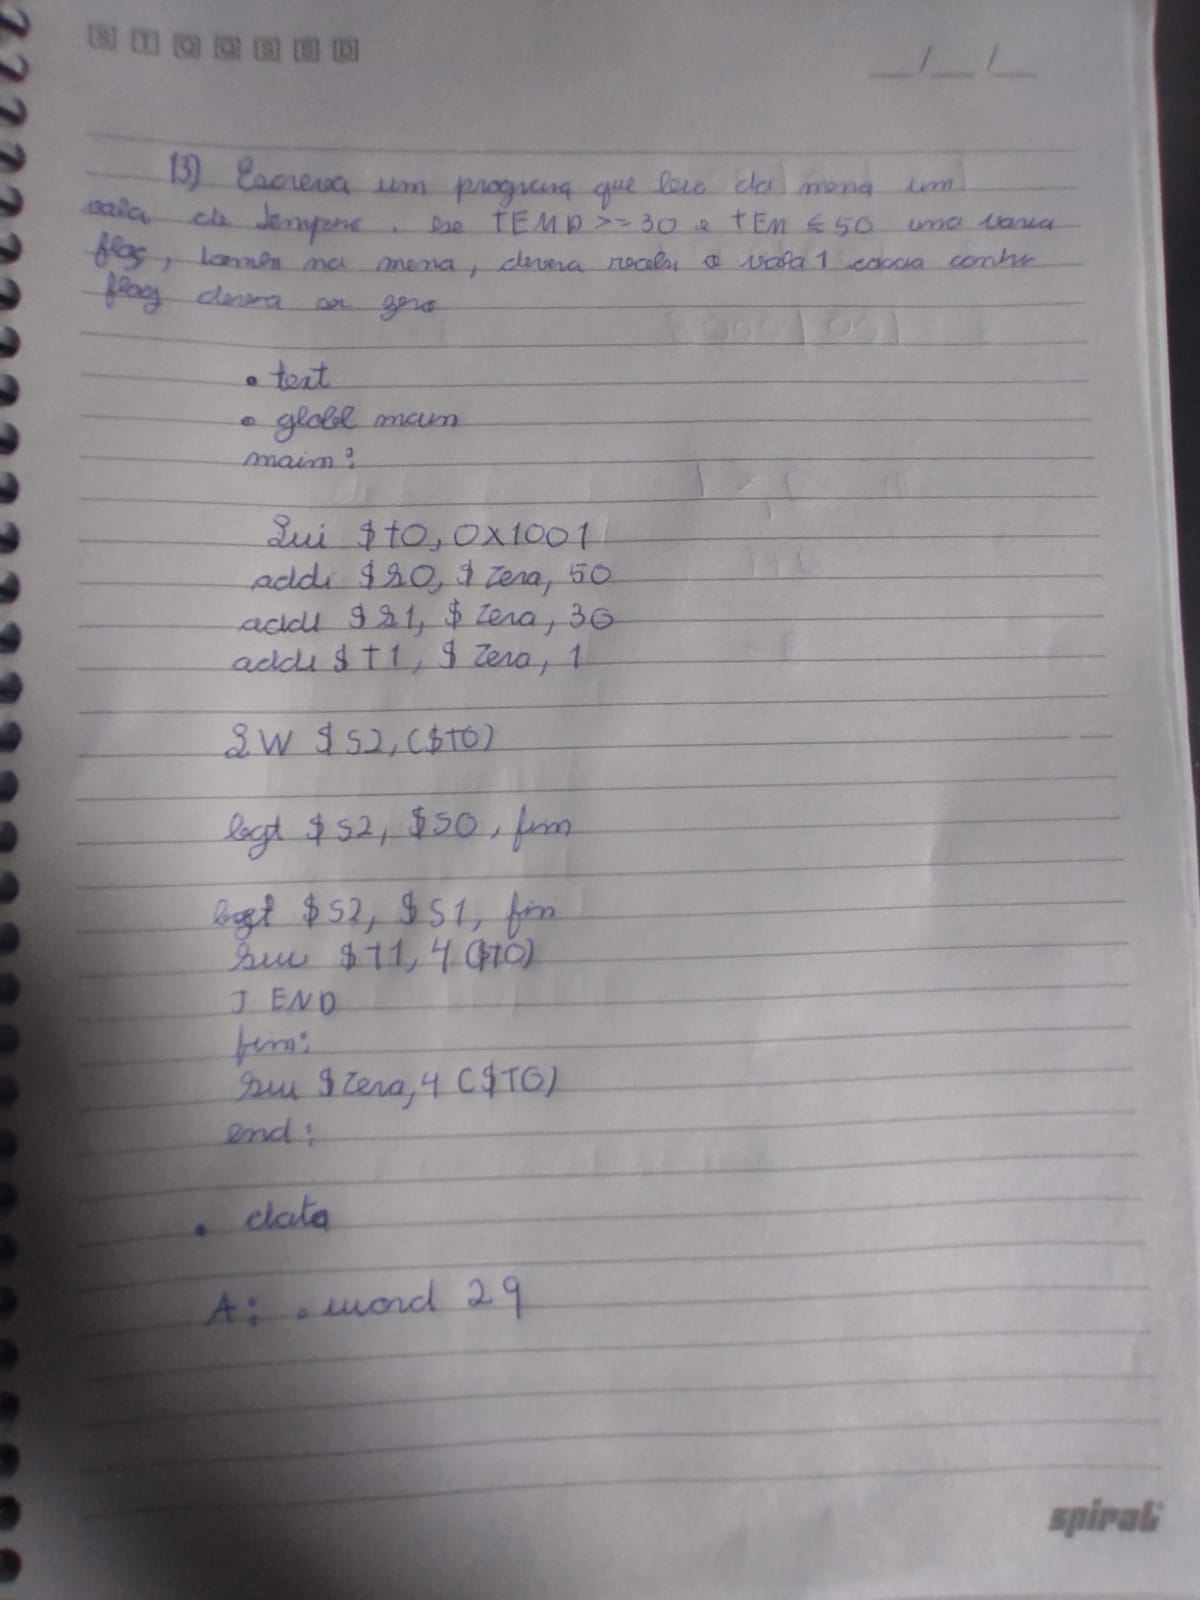 S T Q Q S S D
__/__/__
13) Escreva um programa que leia da memo um
vala de tempera. se TEMP >= 30 e TEM ≤ 50 uma varia
flag, tamen na mema, devera receber o vala 1 caso contr
flag devera ser zero
. text
. globl main
main:
lui $t0, 0x1001
addi $s0, $zero, 50
addi $s1, $zero, 30
addi $t1, $zero, 1
LW $s2, ($t0)
bgt $s2, $s0, fim
$s2, $s1, fim
sw $t1, 4($t0)
J END
fim:
sw $zero, 4($t0)
end:
. data
A: .word 29
spiral